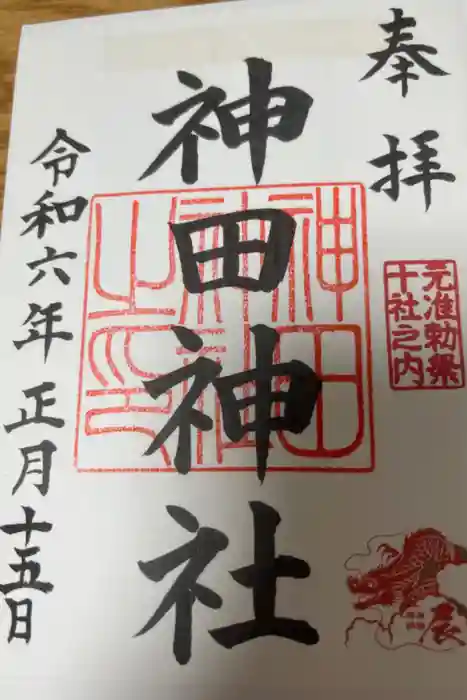 奉拝
元准勅祭
十社之内
辰
神田神社
神田
神社
之印
令和六年正月十五日